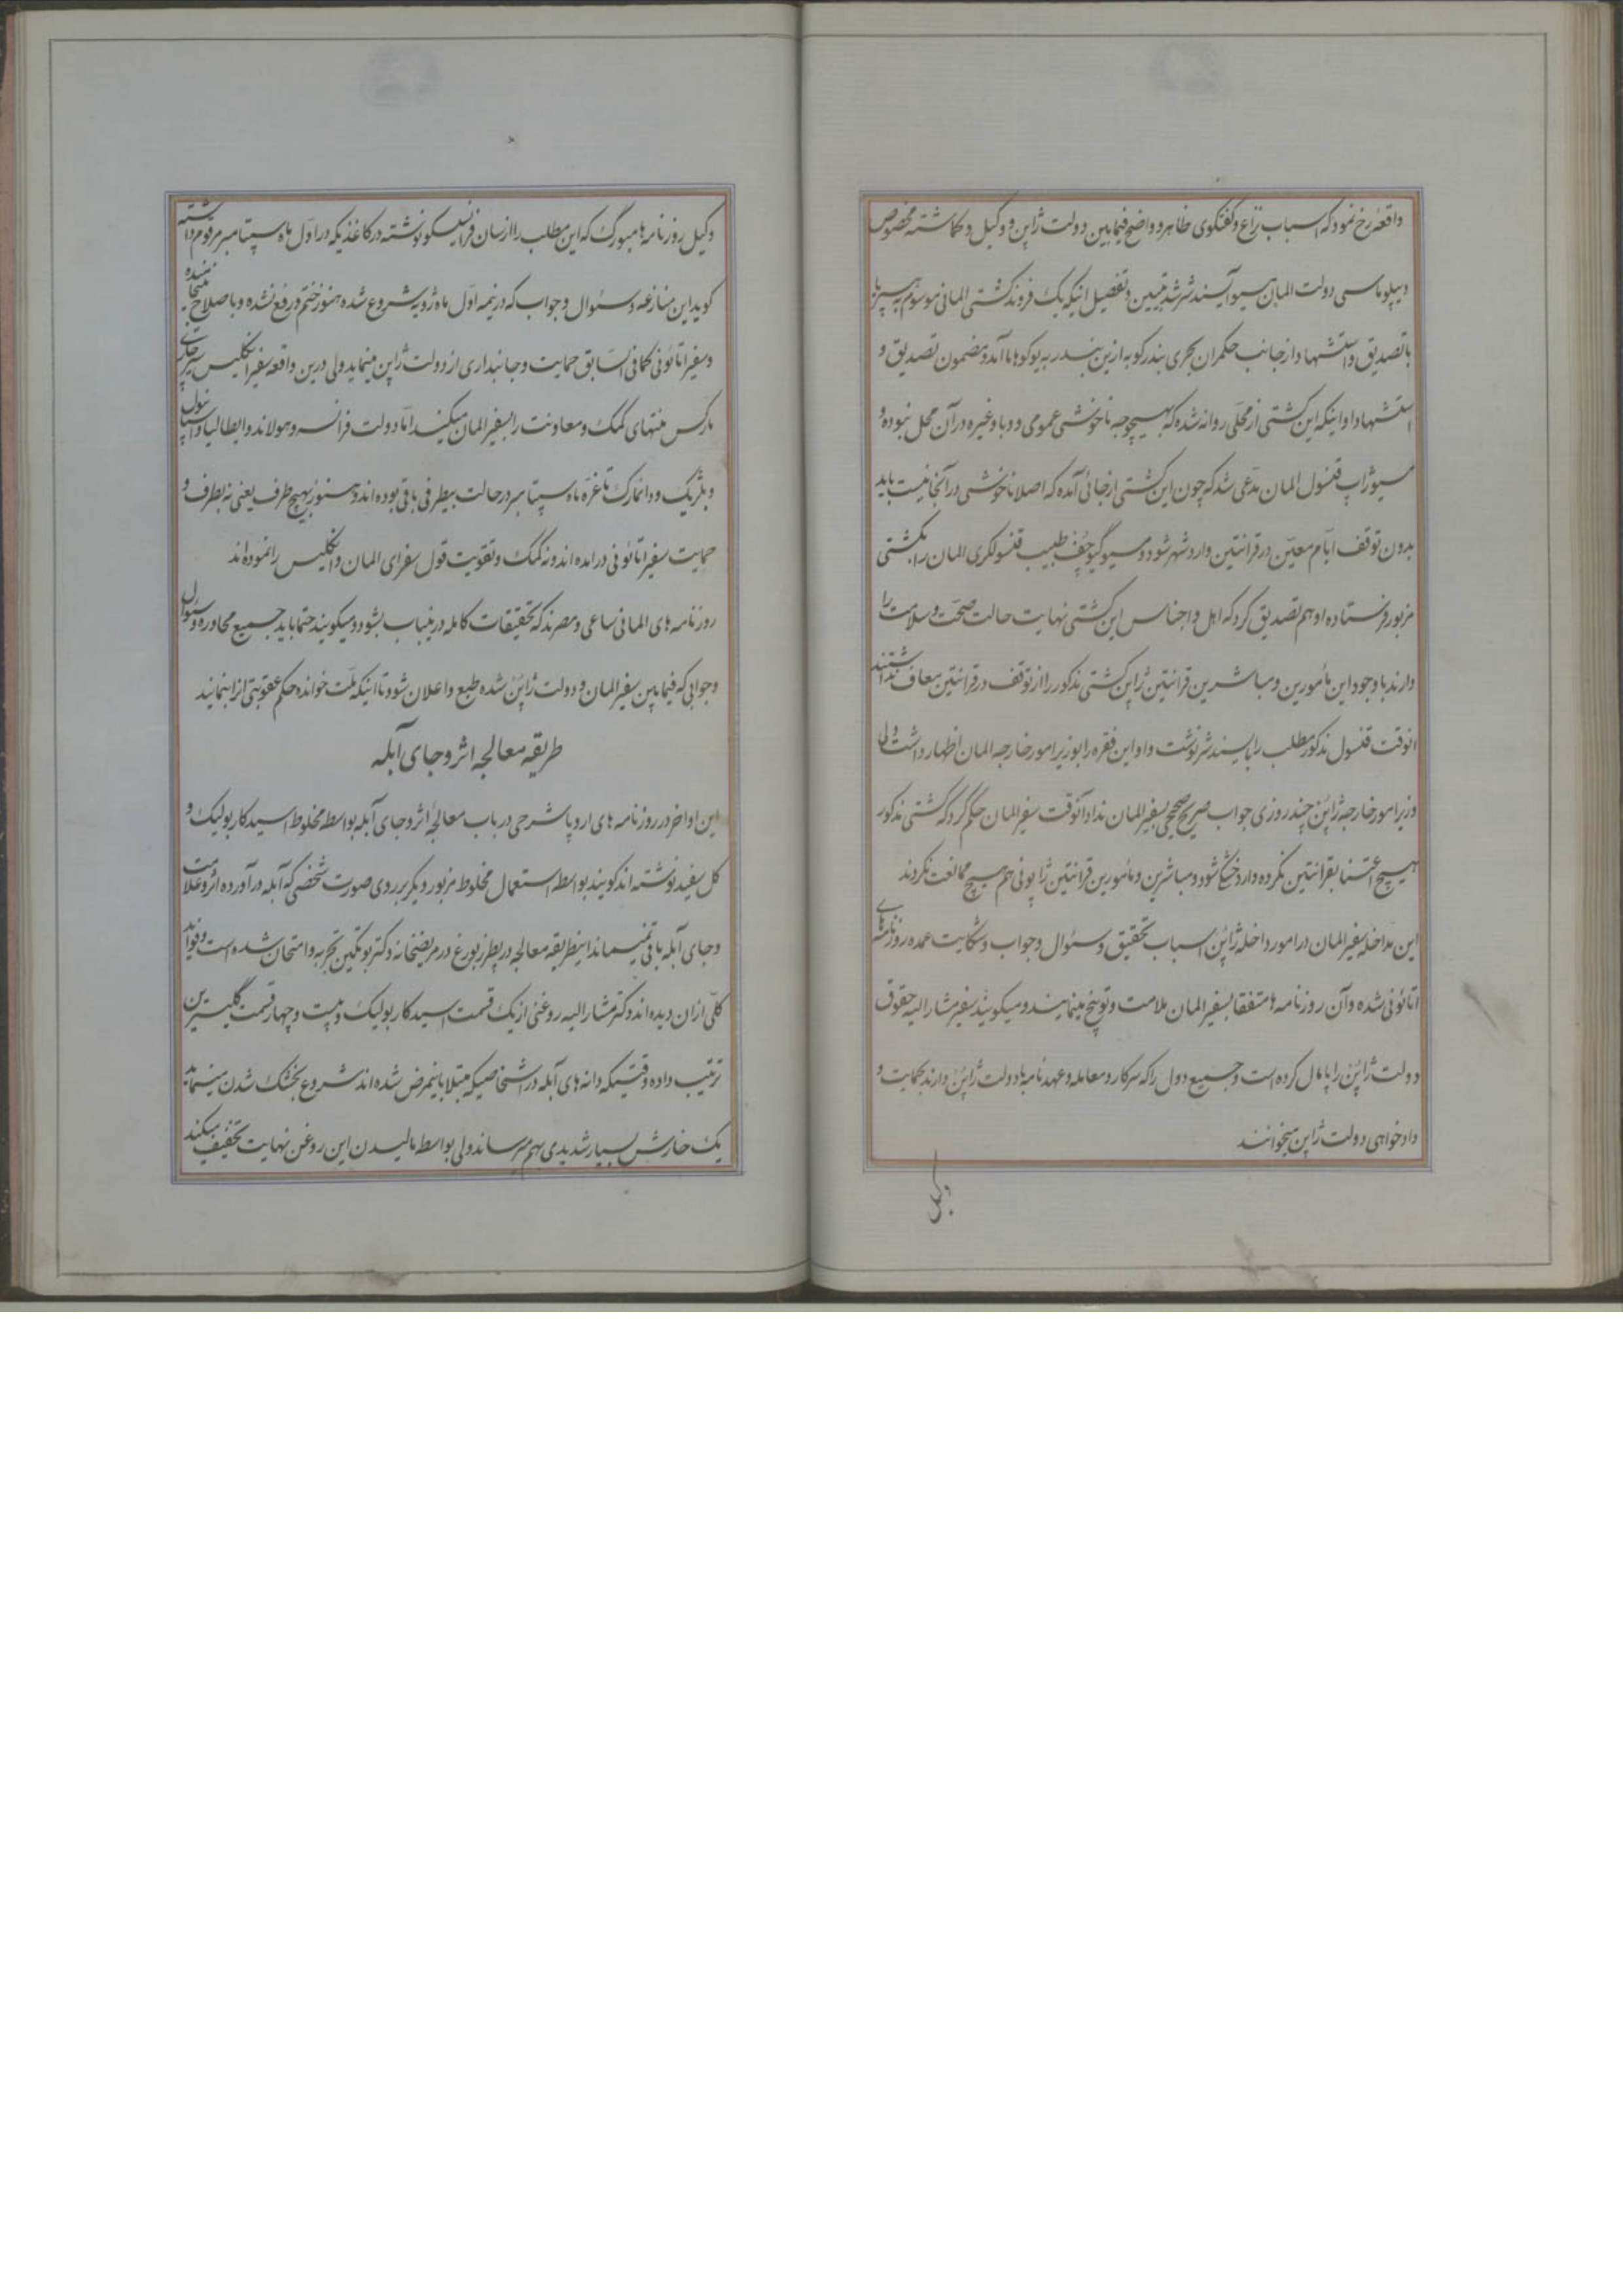 واقعهٔ رخ نمود که اسباب نزاع و گفتگوی ظاهر و واضح فیمابین دولت ژاپن و وکیل و گماشته مخصوص
دیپلوماسی دولت المان مسیو آیسندشر شد تبیین و تفصیل اینکه یک فروند کشتی المانی موسوم به هسپریا
با تصدیق و استشهاد از جانب حکمران بحری بندر کوبه ازین بندر به یوکوهاما آمد و مضمون تصدیق و
استشهاد او اینکه این کشتی از محلی روانه شده که بهیچوجه ناخوشی عمومی و وبا و غیره در آن محل نبوده و
مسیو ژاپ قنسول المان مدعی شد که چون این کشتی از جائی آمده که اصلا ناخوشی در آنجا نیست باید
بدون توقف ایام معین در قرانتین وارد شهر شود و مسیو طبیب قنسولگری المان را بکشتی
مزبور فرستاده او هم تصدیق کرد که اهل و اجناس این کشتی نهایت حالت صحت و سلامت را
دارند با وجود این مأمورین و مباشرین قرانتین ژاپن کشتی مذکور را از توقف در قرانتین معاف نداشتند
انوقت قنسول مذکور مطلب را بایسندشر نوشت و او این فقره را بوزیر امور خارجه المان اظهار داشت ولی
وزیر امور خارجه ژاپن چند روزی جواب صریح صحیحی بسفیر المان نداد آنوقت سفیر المان حکم کرد که کشتی مذکور
هیچ اعتنا بقرانتین نکرده وارد خشکی شود و مباشرین و مأمورین قرانتین ژاپونی هم هیچ ممانعت نکردند
این مداخله سفیر المان در امور داخله ژاپن اسباب تحقیق و سئوال و جواب و شکایت عمده روزنامه‌های
اتائونی شده و آن روزنامه‌ها متفقا بسفیر المان ملامت و توبیخ مینمایند و میگویند سفیر مشارالیه حقوق
دولت ژاپن را پامال کرده است و جمیع دول را که سر کار و معامله و عهدنامه با دولت ژاپن دارند بحمایت و
دادخواهی دولت ژاپن میخوانند
وکیل
وکیل روزنامه هامبورگ که این مطلب را از سان فرانسیسکو نوشته در کاغذیکه در اول ماه سپتامبر مرقوم داشته
گوید این منازعه و سئوال و جواب که در نیمه اول ماه ژویه شروع شده هنوز ختم و رفع نشده و باصلاح نینجامیده
و سفیر اتائونی کما فی السابق حمایت و جانبداری از دولت ژاپن مینماید ولی درین واقعه سفیر انگلیس سر هاری
پارکس منتهای کمک و معاونت را بسفیر المان میکنید اما دولت فرانسه و هولاند و ایطالیا و اسپانیول
و بلژیک و دانمارک تا غره ماه سپتامبر در حالت بیطرفی باقی بوده‌اند و هنوز بهیچ طرف یعنی نه بطرف و
حمایت سفیر اتائونی در امده‌اند و نه کمک و تقویت قول سفرای المان و انگلیس را نموده‌اند
روزنامه‌های المانی ساعی و مصرند که تحقیقات کامله درینباب بشود و میگویند حتما باید جمیع محاوره و سئوال
و جوابی که فیمابین سفیر المان و دولت ژاپن شده طبع و اعلان شود تا اینکه ملت خوانده حکم عقوبتی انرا بنمایند
طریقه معالجه اثر و جای آبله
این اواخر در روزنامه‌های اروپا شرحی در باب معالجهٔ اثر و جای آبله بواسطه مخلوط اسید کاربولیک و
گل سفید نوشته‌اند گویند بواسطه استعمال مخلوط مزبور دیگر بر روی صورت شخصی که آبله درآورده اثر و علامت
و جای آبله باقی نمیماند اینطریقه معالجه در پطرزبورغ در مریضخانه دکتر بوتکین تجربه و امتحان شده است و فواید
کلی از ان دیده‌اند دکتر مشار الیه روغنی از یک قسمت اسید کاربولیک و بیست و چهار قسمت گلیسیرین
ترتیب داده وقتیکه دانه‌های آبله در اشخاصیکه مبتلا باینمرض شده‌اند شروع بخشک شدن مینماید
یک خارش بسیار شدیدی بهم میرساند ولی بواسطه مالیدن این روغن نهایت تخفیف میکند